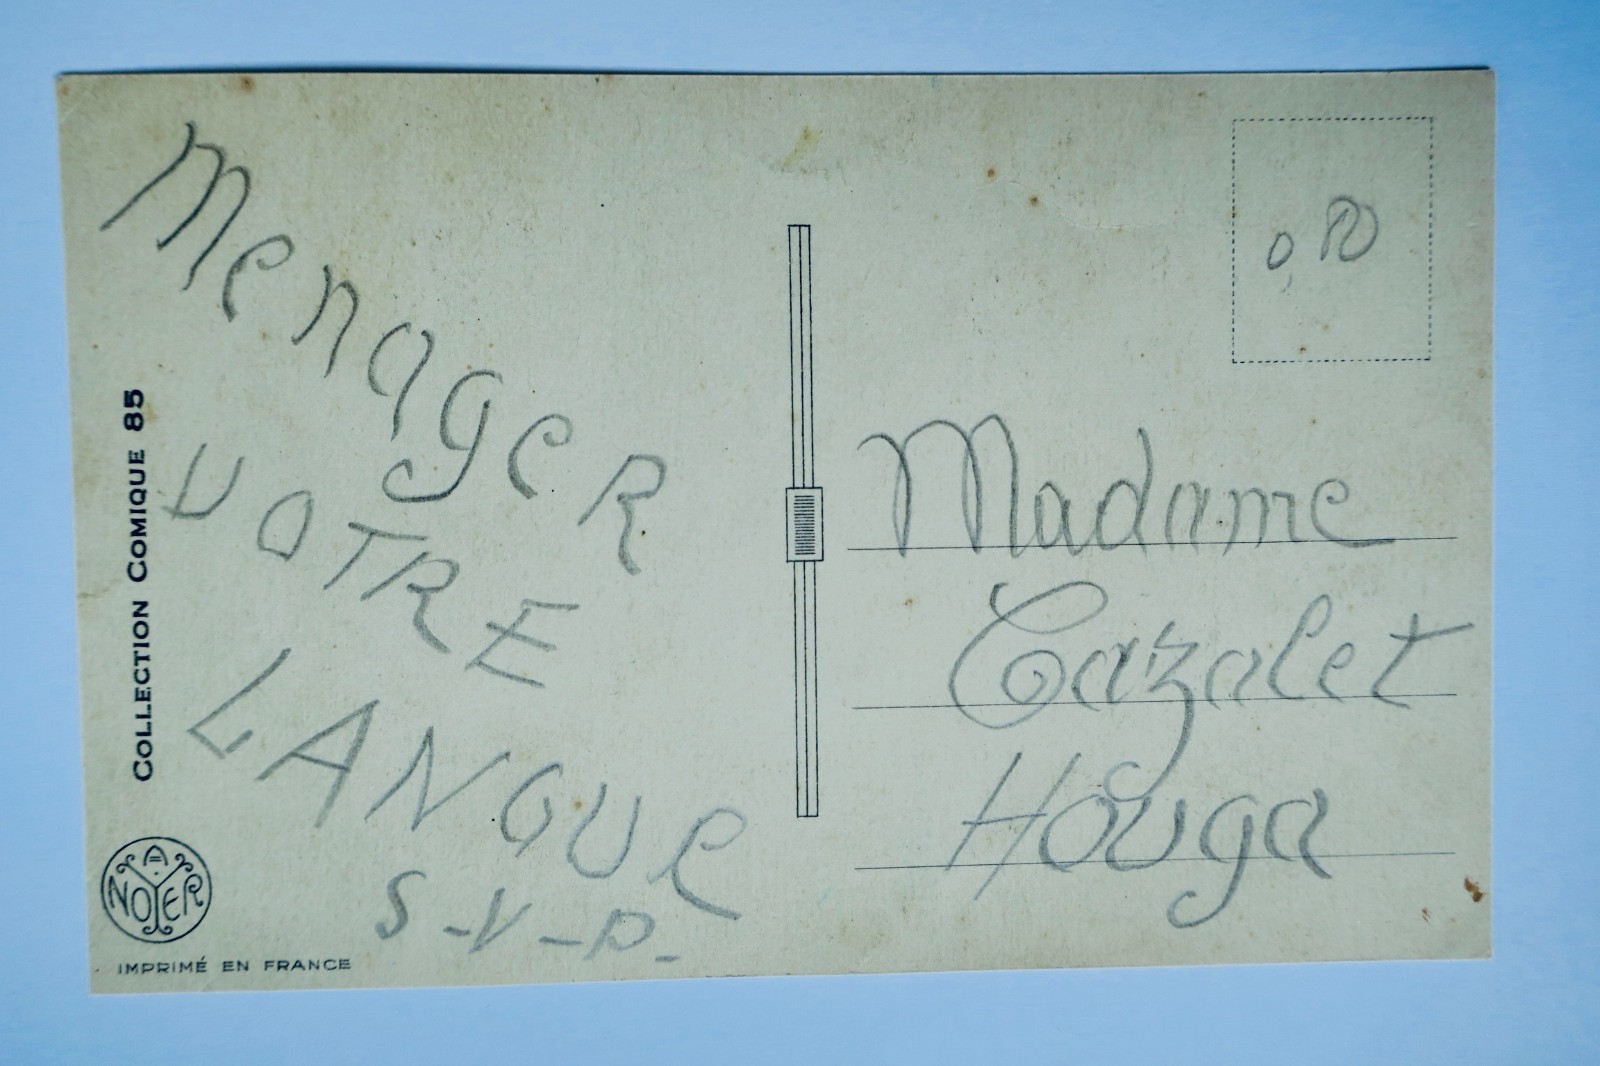 Menager
VOTRE
LANGUe
S-V-P-
COLLECTION COMIQUE 85
A
NOYER
IMPRIMÉ EN FRANCE
Madame
Cazalet
Houga